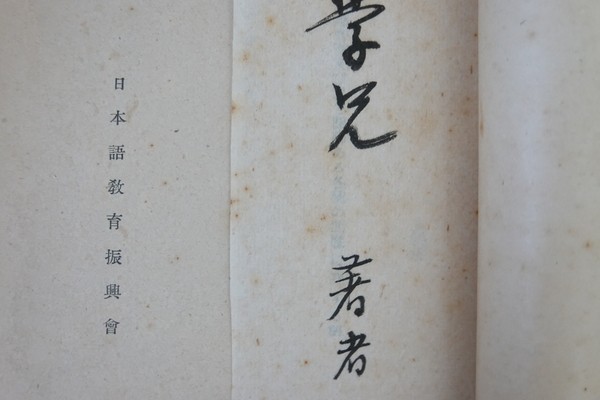 學兄
著者
日本語教育振興會